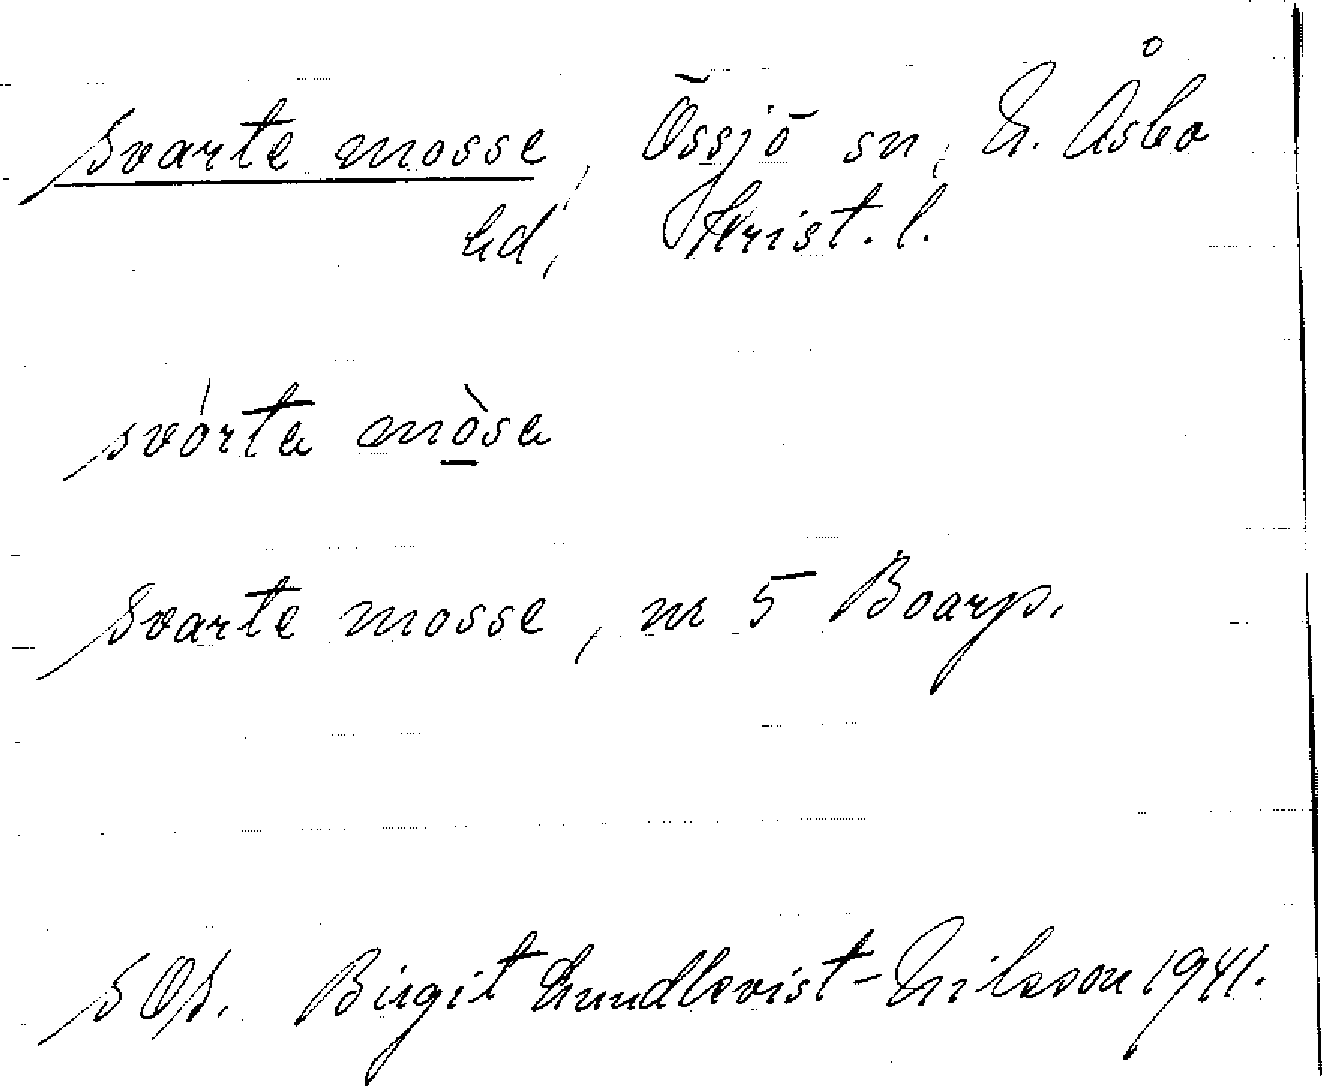 svarte mosse, Össjö sn, N. Åsbo
hd, Krist. l.
svárta mòsa
Svarte mosse, nr 5 Boarp.
Birgit Lundkvist-Nilsson 1941.